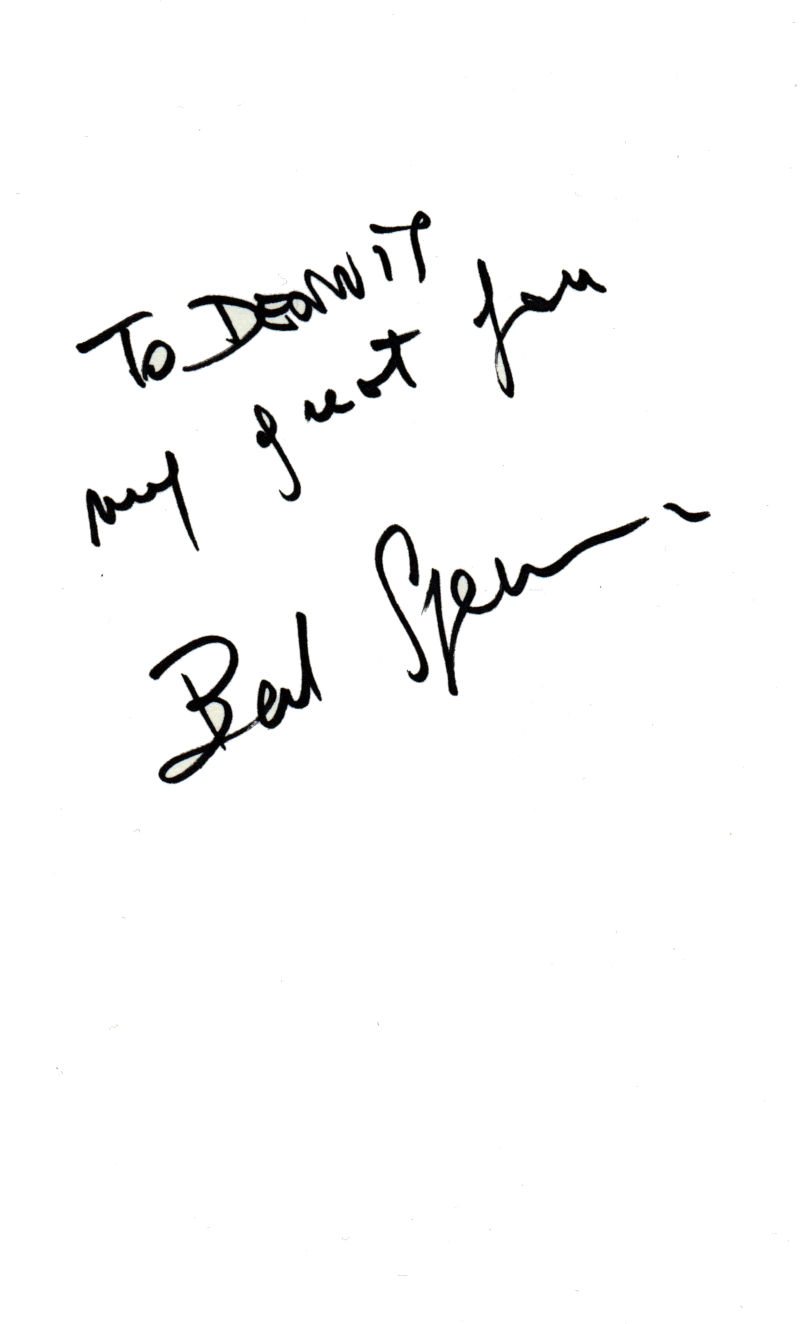 To DEANNIT
my great fan
Bud Spencer